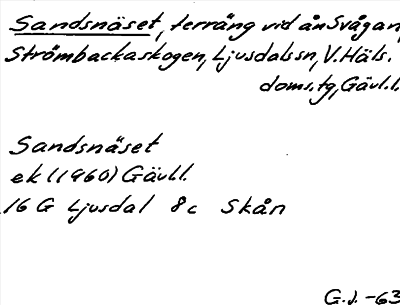 Sandsnäset, terräng vid ån Svågan,
Strömbackaskogen, Ljusdals sn, V. Häls.
doms. tg, Gävl. l.
Sandsnäset
ek (1960) Gävl l.
16 G Ljusdal 8c Skån
G.J. -63